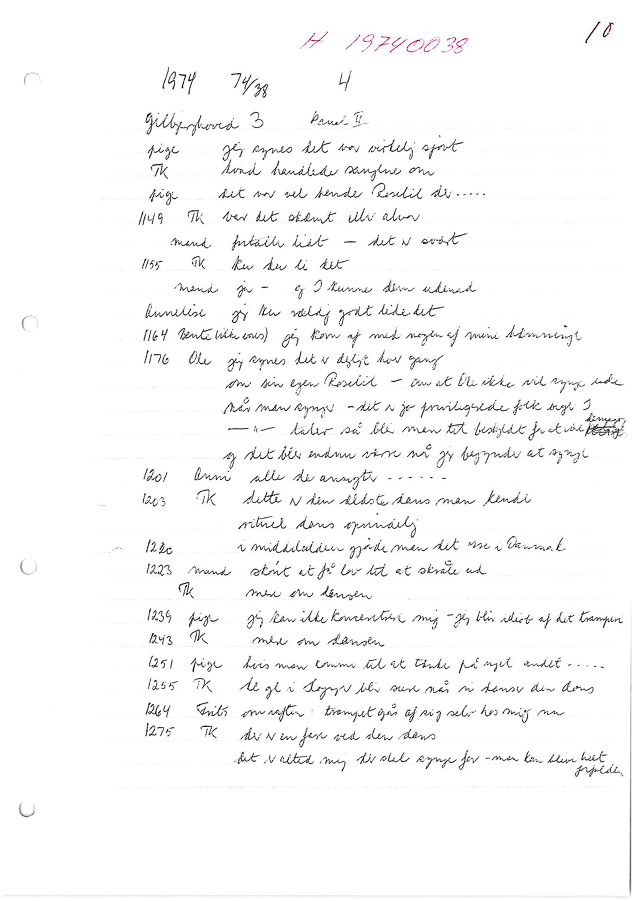 H 19740038
10
1974 74/38 4
Gilbjerghoved 3 Kanal II
pige jeg synes det var virkelig sjovt
TK hvad handlede sangene om
pige det var vel hende Roselil der.....
1149 TK var det skæmt eller alvor
mand fortalte lidt — det er svært
1155 TK kan du li det
mand ja - og I kunne dem udenad
Annelise jeg kan vældig godt lide det
1164 Bente (ikke vores) jeg kom af med nogen af mine hæmninger
1176 Ole jeg synes det er dejligt hver gang
om sin egen Roselil — om at Ole ikke vil synge ude
når man synger - det er jo privilegerede folk I
— " — taler så blir man til beskyldt for at være
og det blir endnu værre når jeg begynder at synge
1201 Anni alle de ansigter ------
1203 TK dette er den ældste dans man kender
rituel dans oprindelig
1220 i middelalderen gjorde man det også i Danmark
1223 mand skønt at få lov til at skråle ud
TK mere om dansen
1239 pige jeg kan ikke koncentrere mig - jeg blir idiot af det tramperi
1243 TK mere om dansen
1251 pige hvis man kommer til at tænke på noget andet -----
1255 TK de gl i blir sure når vi danser den dans
1264 Frits om aften: trampet går af sig selv hos mig nu
1275 TK der er en fare ved den dans
det er altid mig der skal synge for - man kan blive helt